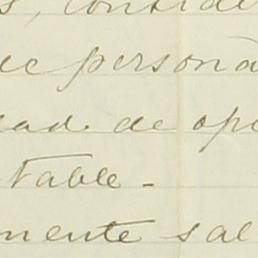 s, conside
de persona
dad de opi
table -
mente sal